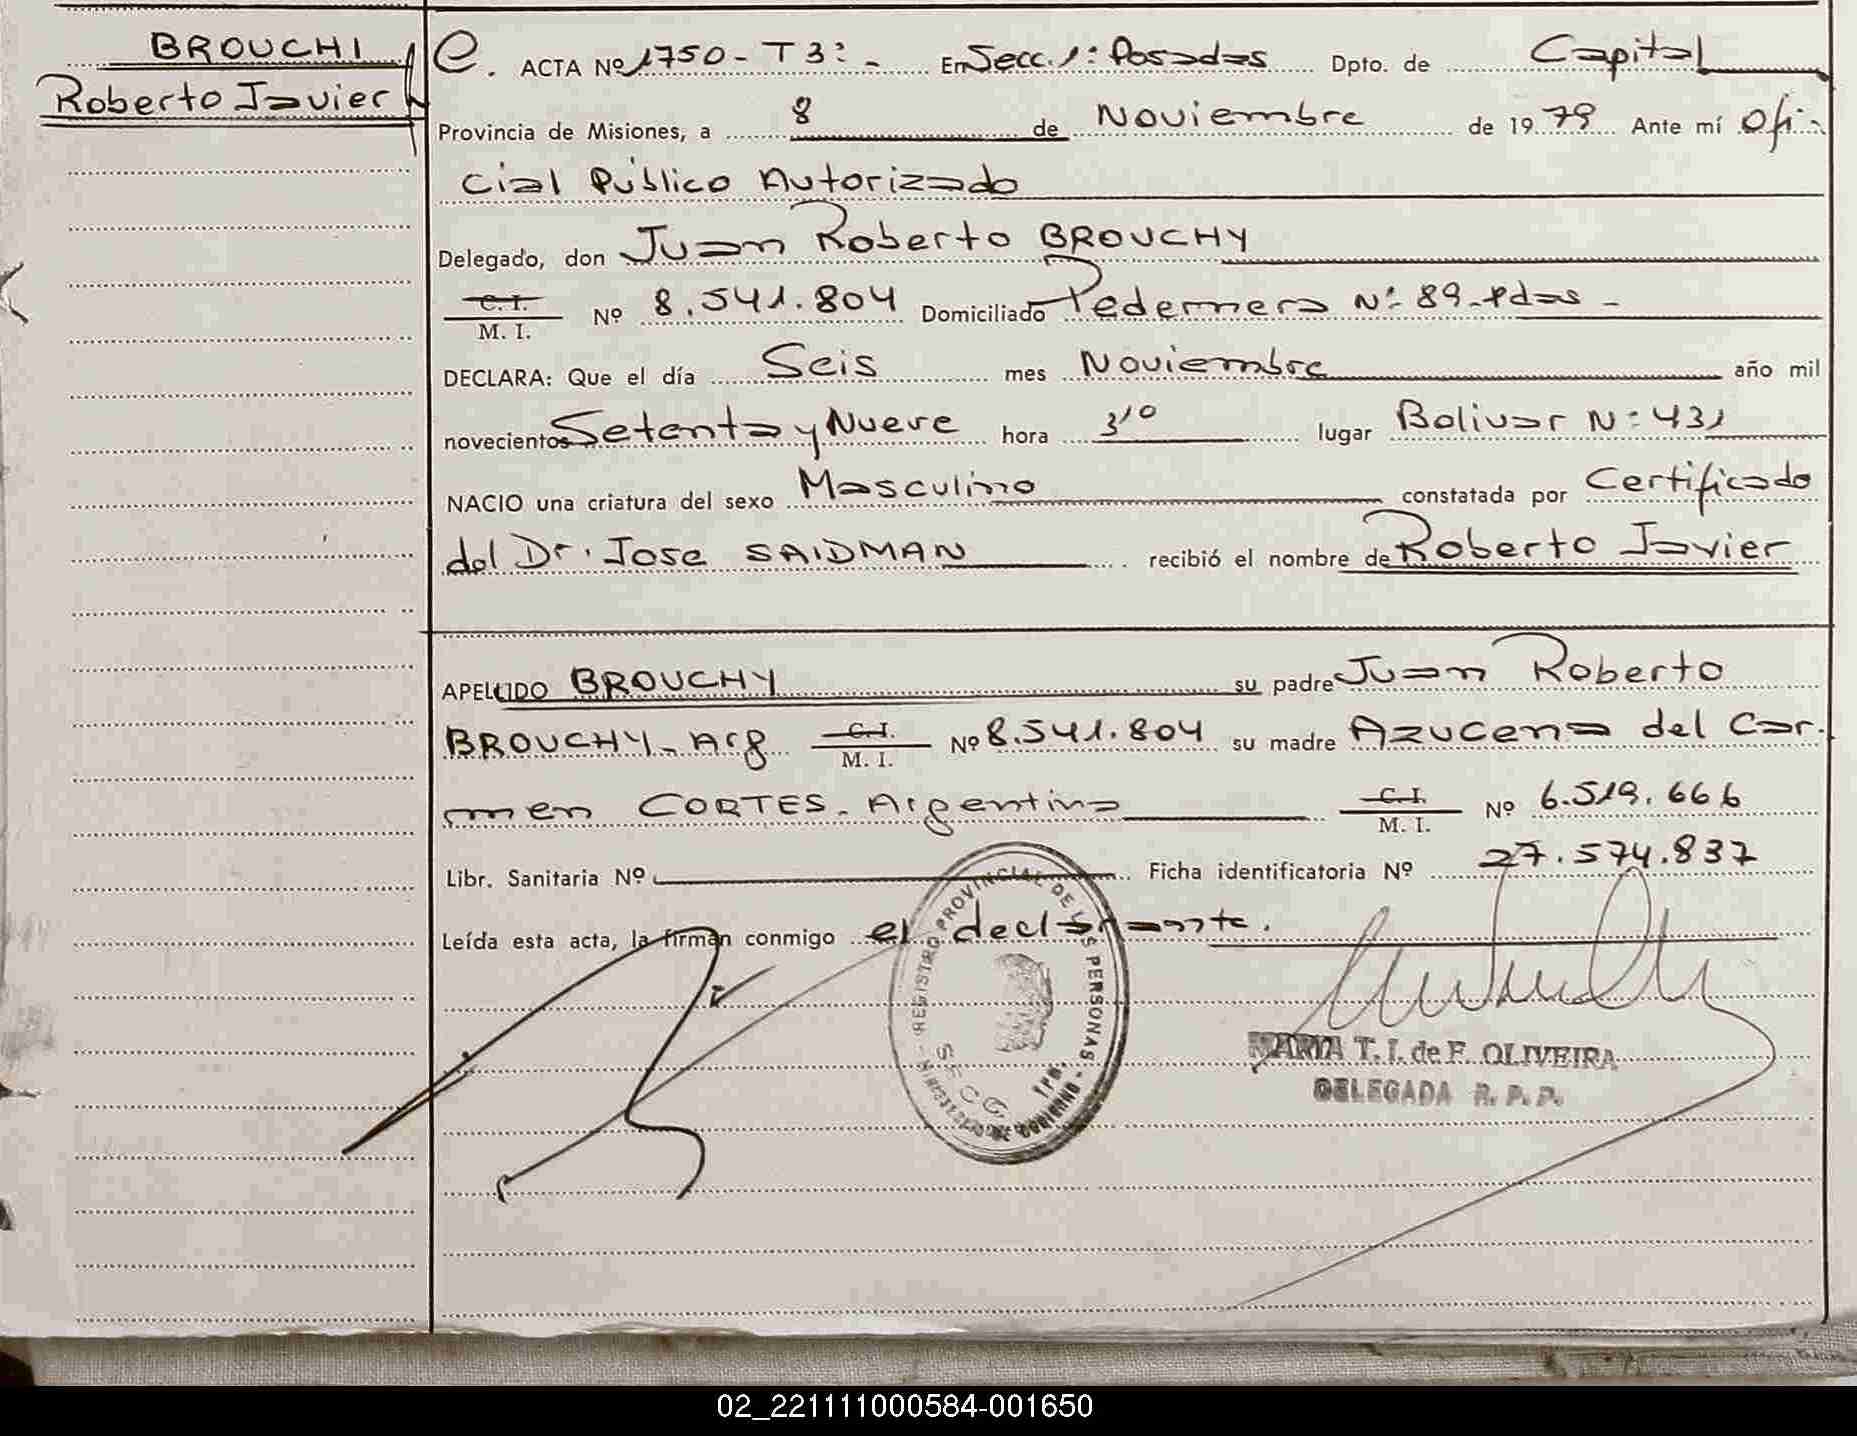 BROUCHI
Roberto Javier
e. ACTA Nº 1750 - T 3: - En Secc. 1: Posadas Dpto. de Capital
Provincia de Misiones, a 8 de Noviembre de 1979 Ante mí Ofi-
cial Público Autorizado
Delegado, don Juan Roberto BROUCHY
C. I.
M. I. Nº 8.541.804 Domiciliado Pedernera Nº 89-Pdas -
DECLARA: Que el día Seis mes Noviembre año mil
novecientos Setenta y Nueve hora 3,10 lugar Bolivar Nº 431
NACIO una criatura del sexo Masculino constatada por Certificado
del Dr. Jose SAIDMAN recibió el nombre de Roberto Javier
APELLIDO BROUCHY su padre Juan Roberto
BROUCHY-Arg C. I. M. I. Nº 8.541.804 su madre Azucena del Car-
men CORTES - Argentina C. I. M. I. Nº 6.519.666
Libr. Sanitaria Nº Ficha identificatoria Nº 27.574.837
Leída esta acta, la firman conmigo el declarante.
REGISTRO PROVINCIAL DE LAS PERSONAS - MINISTERIO DE GOBIERNO
SECC. 1ra.
MARIA T. I. de F. OLIVEIRA
DELEGADA R. P. P.
02_221111000584-001650